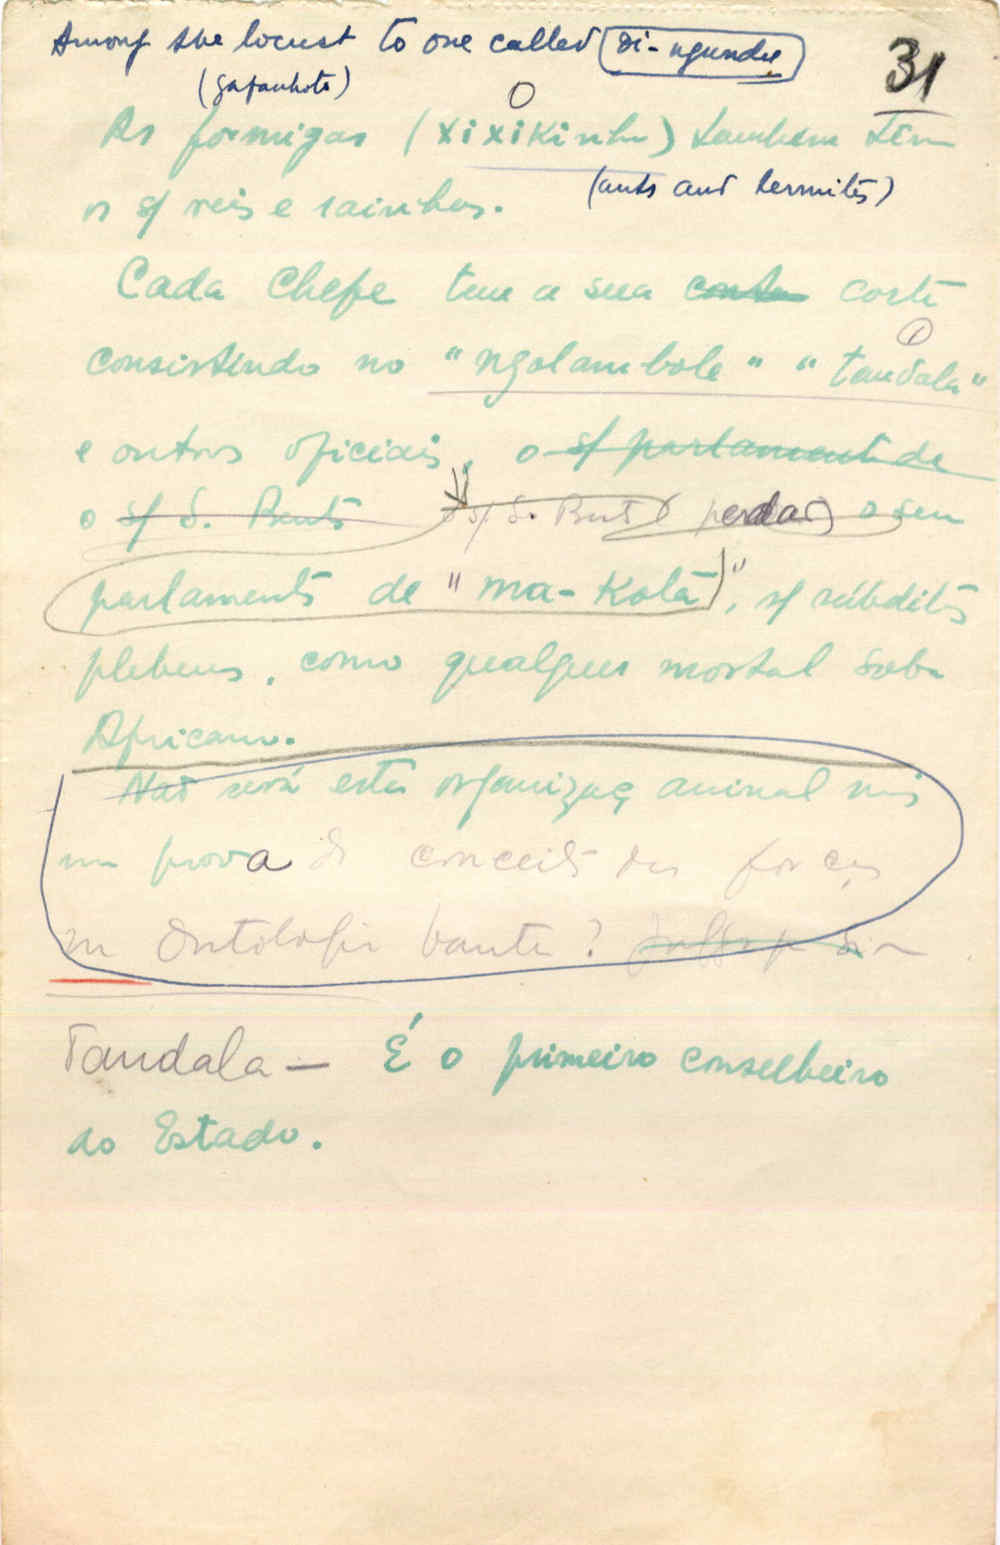 Among the locust to one called di-ngundu
31
(gafanhoto)
As formigas (xixikinhu) tambem têm
(ants and termites)
os s/ reis e rainhas.
Cada Chefe tem a sua corte
consistindo no "ngolambole" "tandala"
e outros oficiais, o s/ parlamento de
o s/ S. Bento s/ S. Bento ( perdão) o seu
parlamento de "ma-kota", s/ súbditos
plebeus, como qualquer mortal soba
Africano.
Não será esta organizaç animal mais
uma prova do conceito das forças
na Ontologia bantu?
Tandala — É o primeiro conselheiro
do Estado.